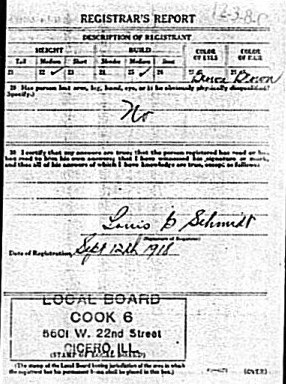 12-3-8-C
REGISTRAR'S REPORT
DESCRIPTION OF REGISTRANT
HEIGHT BUILD COLOR OF EYES COLOR OF HAIR
Tall Medium Short Slender Medium Stout
21 22 ✓ 23 24 25 ✓ 26 27 Brown 28 Brown
29 Has person lost arm, leg, hand, eye, or is he obviously physically disqualified?
(Specify.)
No
30 I certify that my answers are true; that the person registered has read or has
had read to him his own answers; that I have witnessed his signature or mark,
and that all of his answers of which I have knowledge are true, except as follows:
Louis C Schmidt
(Signature of Registrar)
Date of Registration Sept 12th 1918
LOCAL BOARD
COOK 6
5601 W. 22nd Street
CICERO, ILL.
(STAMP OF LOCAL BOARD)
(The stamp of the Local Board having jurisdiction of the area in which
the registrant has his permanent home shall be placed in this box.)
(OVER)